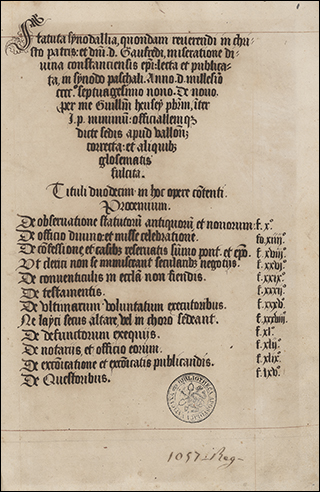 Statuta synodallia, quondam reuerendi in chri
sto patris: et dni. d. Gaufredi, miseratione di
uina constantiensis epi: lecta et publica
ta, in synodo paschali. Anno. d. millesio
cccc. septuagesimo nono. De nouo.
per me Guillm
J. p. minimū: officialemqȝ
dicte sedis apud vallon̄
correcta: et aliquib
glosematis
fulcita.
Tituli duodecim in hoc opere cōtenti.
Proemium.
De obseruatione statutorū antiquorū et nouorum: f. x.
De officio diuino: et misse celebratione. fo. xiiij.
De cōfessione et casibus reseruatis sūmo pont. et epo. f. xviij.
Vt clerici non se immisceant secularib negotijs. f. xxvj.
De conuenticulis in eccl̄ia non fiendis. f. xxix.
De testamentis. f. xxxij.
De vltimarum voluntatum executoribus. f. xxxv.
Ne layci secus altare, vel in choro sedeant. f. xxxviij.
De defunctorum exequijs. f. xl.
De notarijs, et officio eorum. f. xlij.
De excōicatione et excōicatis publicandis. f. xlix.
De Questoribus. f. lxv.
1057 Reg